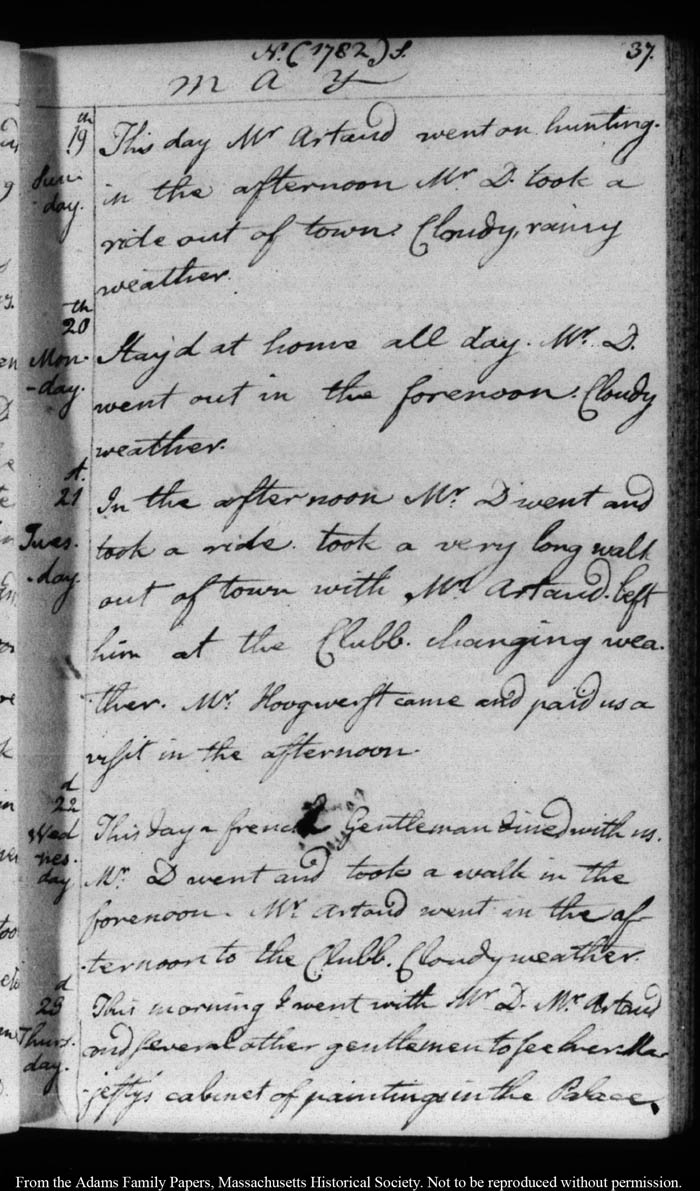 N. (1782) S. 37.
MAY
19th Sunday.
This day Mr Artaud went on hunting.
in the afternoon Mr D. took a
ride out of town. Cloudy, rainy
weather.
20th Monday.
Stay'd at home all day. Mr. D.
went out in the forenoon. Cloudy
weather.
21st. Tuesday.
In the afternoon Mr. D went and
took a ride. took a very long walk
out of town with Mr Artaud. left
him at the Clubb. changing wea-
ther. Mr. Hoogwerft came and paid us a
visit in the afternoon.
22d Wednesday
This day a french Gentleman dined with us.
Mr. D went and took a walk in the
forenoon. Mr Artaud went in the af-
ternoon to the Clubb. Cloudy weather.
23d Thursday.
This morning I went with Mr D. Mr Artaud
and several other gentlemen to see her Ma-
jesty's cabinet of paintings in the Palace.
From the Adams Family Papers, Massachusetts Historical Society. Not to be reproduced without permission.